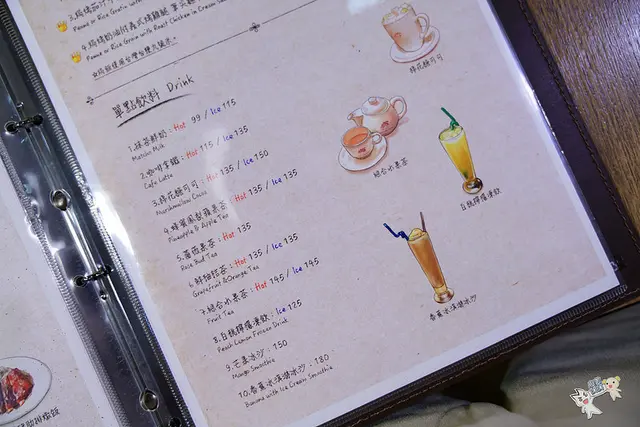 Penne or Rice Gratin with Roast Chicken in Cream Sauce
單點飲料 Drink
1.抹茶鮮奶:Hot 99 / Ice 115
Matcha Milk
2.咖啡拿鐵:Hot 115 / Ice 135
Cafe Latte
3.棉花糖可可:Hot 135 / Ice 150
Marshmallow Cocoa
4.蜂蜜鳳梨蘋果茶:Hot 135 / Ice 135
Pineapple & Apple Tea
5.薔薇果茶:Hot 135
Rose Bud Tea
6.鮮柚橙茶:Hot 135 / Ice 135
Grapefruit & Orange Tea
7.綜合水果茶:Hot 145 / Ice 145
Fruit Tea
8.白桃檸檬凍飲:Ice 125
Peach Lemon Frozen Drink
9.芒果冰沙:150
Mango Smoothie
10.香蕉冰淇淋冰沙:180
Banana with Ice Cream Smoothie
棉花糖可可
綜合水果茶
白桃檸檬凍飲
香蕉冰淇淋冰沙